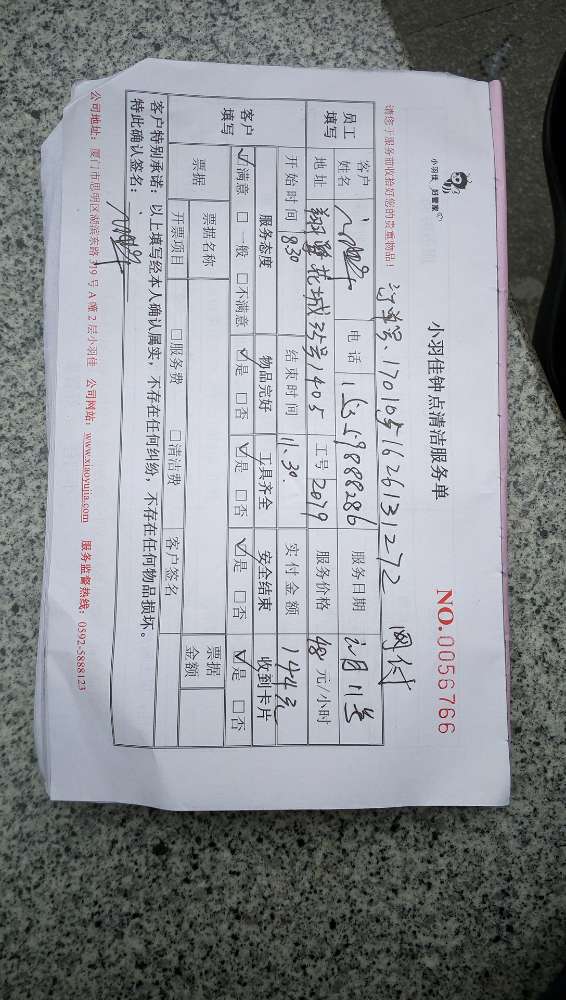 小羽佳 好管家
小羽佳钟点清洁服务单
NO.0056766
请您于服务前收拾好您的贵重物品!
订单号:1701051626131272 网付
员工填写 客户姓名 电话 15359888286 服务日期 2月11号
地址 翔鹭花城35号1405 工号 2079 服务价格 48元/小时
开始时间 8.30 结束时间 11.30. 实付金额 144元
客户填写 服务态度 物品完好 工具齐全 安全结束 收到卡片
☑满意 □一般 □不满意 ☑是 □否 ☑是 □否 ☑是 □否 ☑是 □否
票据 票据名称 票据金额
开票项目 □服务费 □清洁费 客户签名
客户特别承诺:以上填写经本人确认属实,不存在任何纠纷,不存在任何物品损坏。
特此确认签名:
公司地址:厦门市思明区湖滨东路319号A幢2层小羽佳 公司网站:www.xiaoyujia.com 服务监督热线:0592-5888123